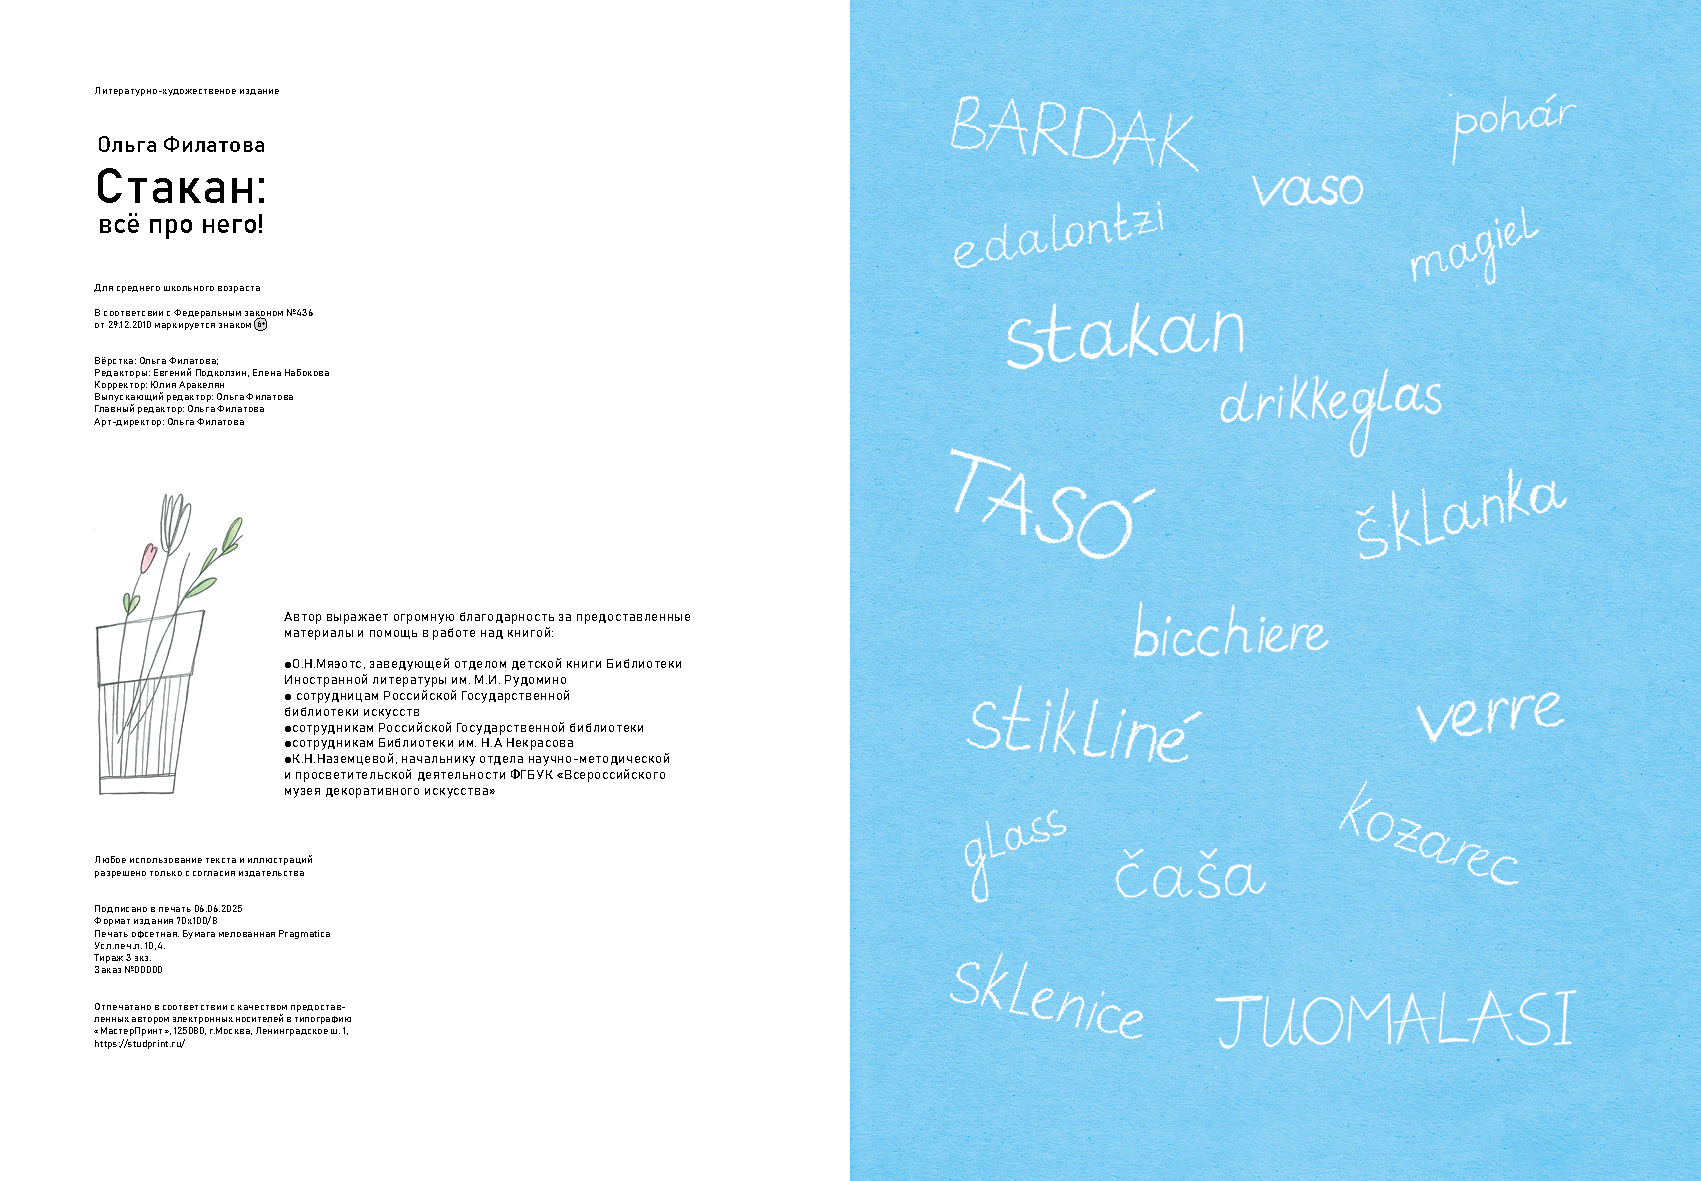 Литературно-художественое издание
Ольга Филатова
Стакан:
всё про него!
Для среднего школьного возраста
В соответсвии с Федеральным законом №436
от 29.12.2010 маркируется знаком 6+
Вёрстка: Ольга Филатова;
Редакторы: Евгений Подколзин, Елена Набокова
Корректор: Юлия Аракелян
Выпускающий редактор: Ольга Филатова
Главный редактор: Ольга Филатова
Арт-директор: Ольга Филатова
Автор выражает огромную благодарность за предоставленные
материалы и помощь в работе над книгой:
●О.Н.Мяэотс, заведующей отделом детской книги Библиотеки
Иностранной литературы им. М.И. Рудомино
● сотрудницам Российской Государственной
библиотеки искусств
●сотрудникам Российской Государственной библиотеки
●сотрудникам Библиотеки им. Н.А Некрасова
●К.Н.Наземцевой, начальнику отдела научно-методической
и просветительской деятельности ФГБУК «Всероссийского
музея декоративного искусства»
Любое использование текста и иллюстраций
разрешено только с согласия издательства
Подписано в печать 06.06.2025
Формат издания 70х100/8
Печать офсетная. Бумага мелованная Pragmatica
Усл.печ.л. 10,4.
Тираж 3 экз.
Заказ №00000
Отпечатано в соответствии с качеством предостав-
ленных автором электронных носителей в типографию
«МастерПринт», 125080, г.Москва, Ленинградское ш. 1,
https://studprint.ru/
BARDAK
pohár
vaso
edalontzi
magiel
stakan
drikkeglas
TASÓ
šklanka
bicchiere
stikliné
verre
glass
kozarec
čaša
sklenice
JUOMALASI